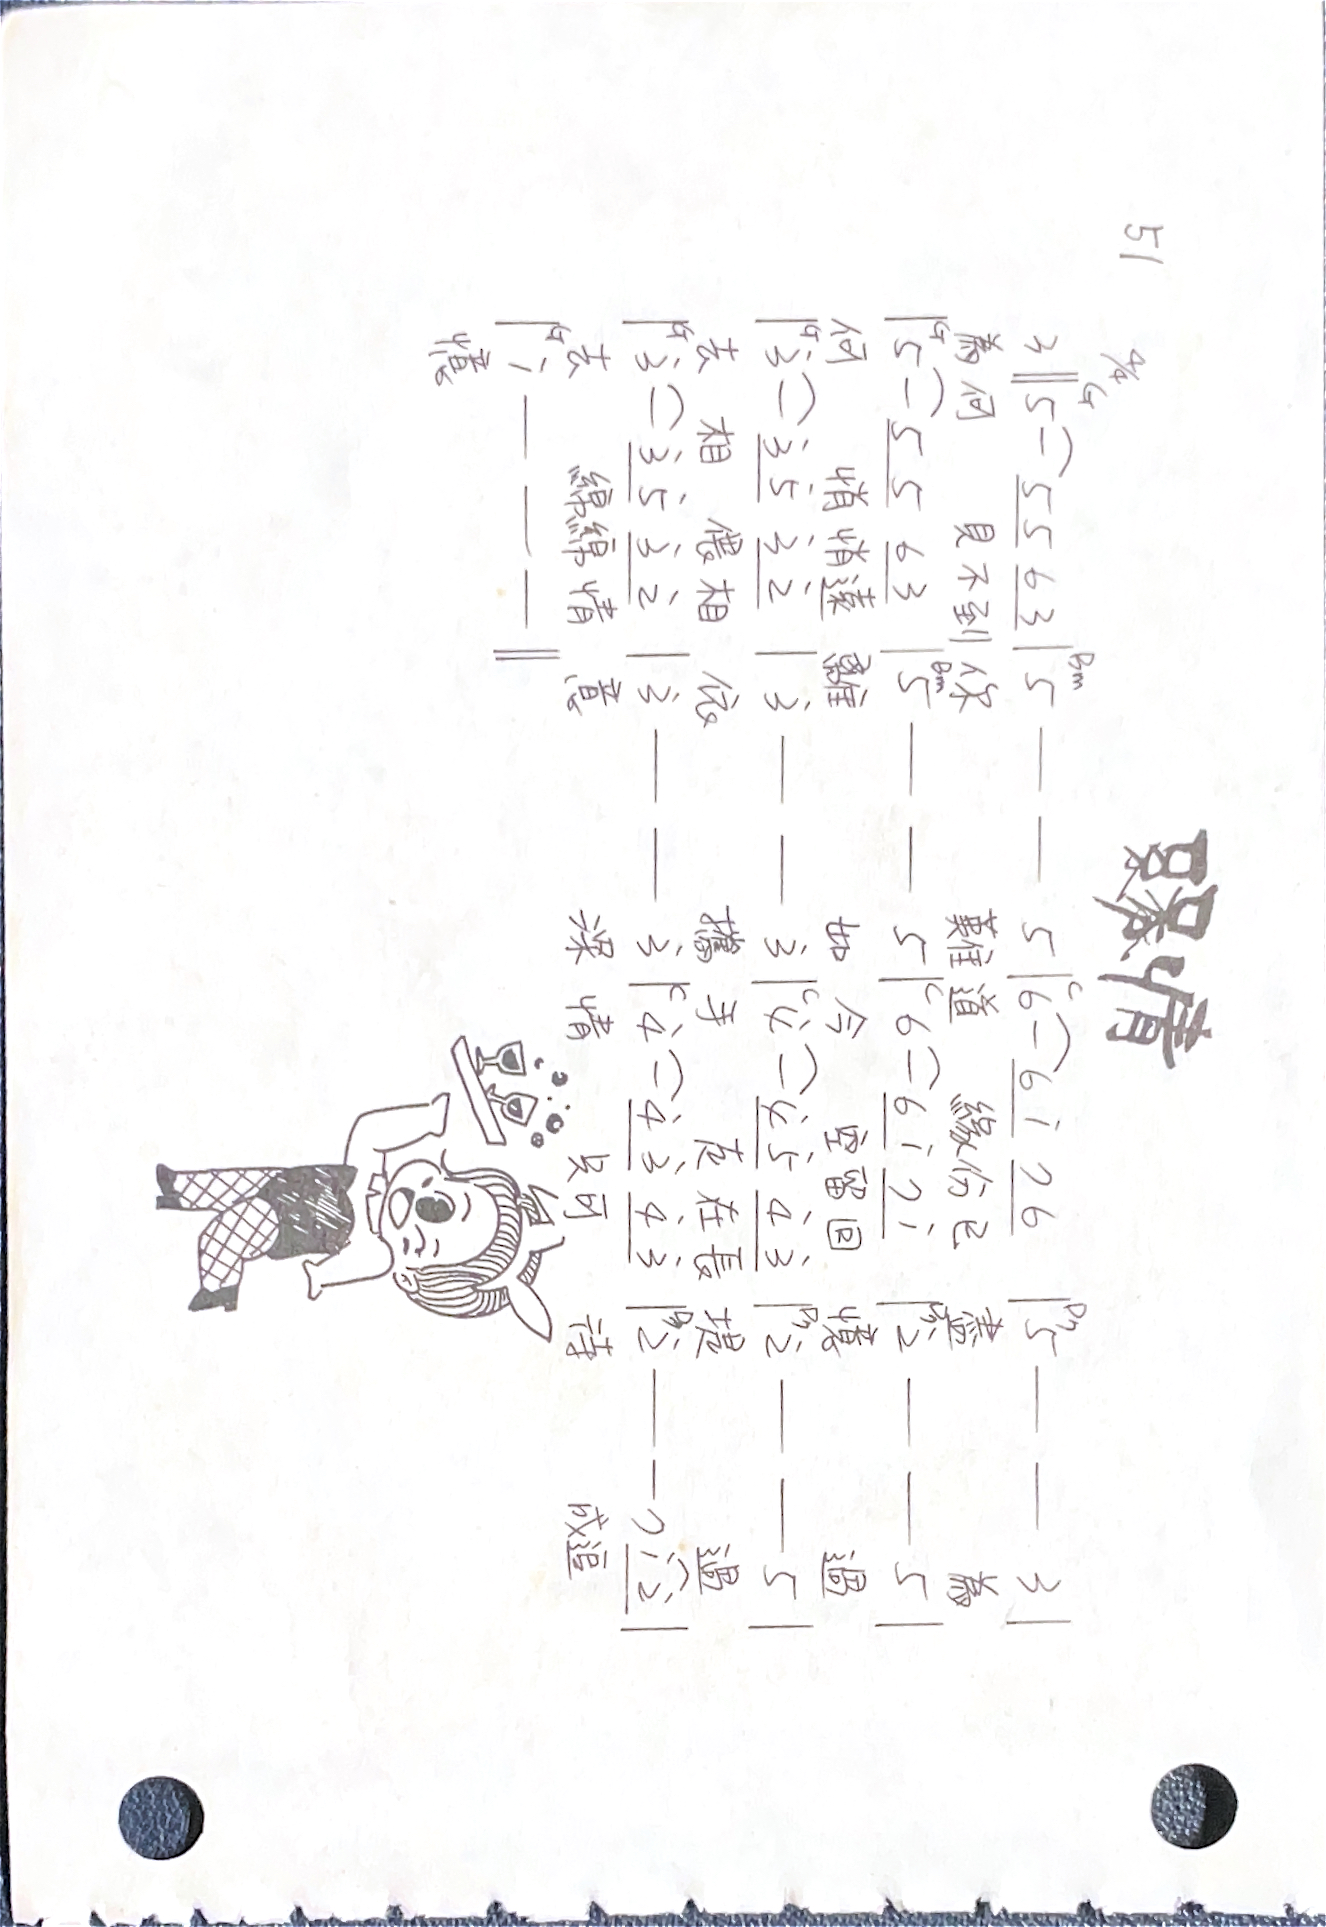 緣情
51
4/4
G Bm C D7
3 ‖ 5 — 5 5 6 3 | 5 — — 5 | 6 — 6 i 7 6 | 5 — — 3 |
為何 見不到你 難道 緣份已 盡 為
G Bm C D7
| 5 — 5 5 6 3 | 5 — — 5 | 6 — 6 i 7 i | 2̇ — — 5 |
何 悄悄遠 離 如今 空留回 憶 過
G C D7
| 3̇ — 3̇ 5̇ 3̇ 2̇ | 3̇ — — 3̇ | 4̇ — 4̇ 5̇ 4̇ 3̇ | 2̇ — — 5 |
去 相 偎相 依 攜手 走在長 堤 過
G C D7
| 3̇ — 3̇ 5̇ 3̇ 2̇ | 3̇ — — 3̇ | 4̇ — 4̇ 3̇ 4̇ 3̇ | 2̇ — — 7 i 2̇ |
去 綿綿情 意 深情 只可 待 成追
G
| i — — — ‖
憶